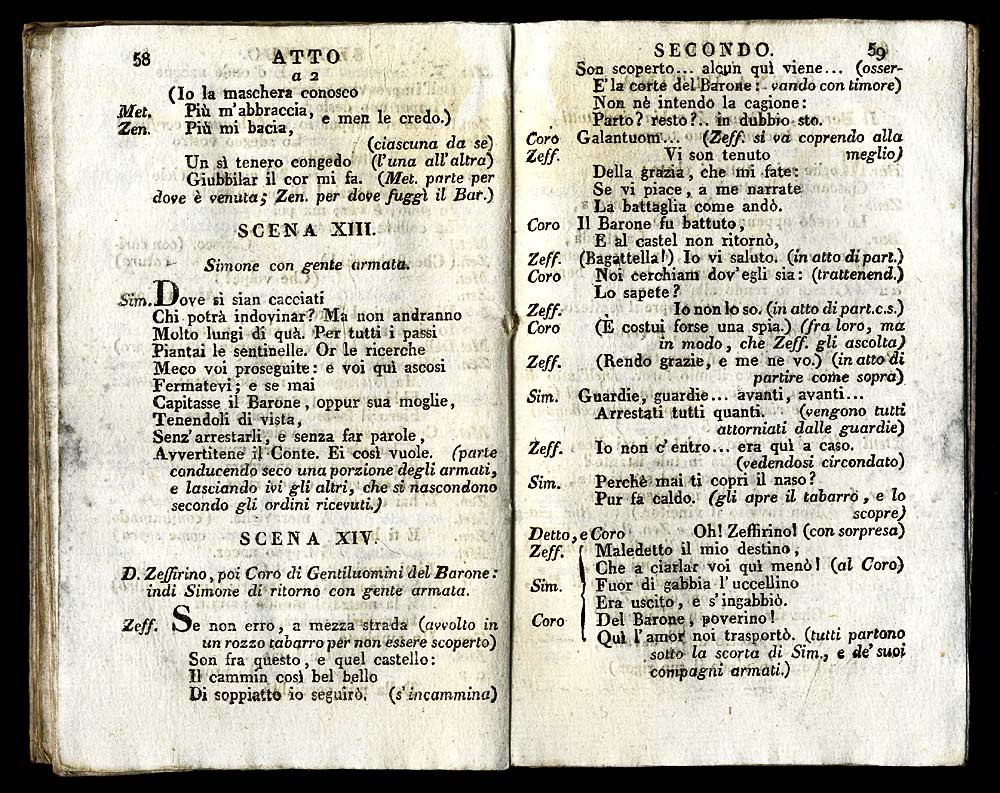 58 ATTO
a 2
(Io la maschera conosco
Met. Più m'abbraccia,
Zen. Più mi bacia, e men le credo.)
(ciascuna da se)
Un sì tenero congedo (l'una all'altra)
Giubbilar il cor mi fa. (Met. parte per
dove è venuta; Zen. per dove fuggì il Bar.)
SCENA XIII.
Simone con gente armata.
Sim. Dove si sian cacciati
Chi potrà indovinar? Ma non andranno
Molto lungi di quà. Per tutti i passi
Piantai le sentinelle. Or le ricerche
Meco voi proseguite: e voi quì ascosi
Fermatevi; e se mai
Capitasse il Barone, oppur sua moglie,
Tenendoli di vista,
Senz'arrestarli, e senza far parole,
Avvertitene il Conte. Ei così vuole. (parte
conducendo seco una porzione degli armati,
e lasciando ivi gli altri, che si nascondono
secondo gli ordini ricevuti.)
SCENA XIV.
D. Zeffirino, poi Coro di Gentiluomini del Barone:
indi Simone di ritorno con gente armata.
Zeff. Se non erro, a mezza strada (avvolto in
un rozzo tabarro per non essere scoperto)
Son fra questo, e quel castello:
Il cammin così bel bello
Di soppiatto io seguirò. (s'incammina)
SECONDO. 59
Son scoperto... alcun quì viene... (osser-
E' la corte del Barone: - vando con timore)
Non nè intendo la cagione:
Parto? resto?.. in dubbio sto.
Coro Galantuom... (Zeff. si va coprendo alla
Zeff. Vi son tenuto meglio)
Della grazia, che mi fate:
Se vi piace, a me narrate
La battaglia come andò.
Coro Il Barone fu battuto,
E al castel non ritornò,
Zeff. (Bagattella!) Io vi saluto. (in atto di part.)
Coro Noi cerchiam dov'egli sia: (trattenend.)
Lo sapete?
Zeff. Io non lo so. (in atto di part.c.s.)
Coro (È costui forse una spia.) (fra loro, ma
in modo, che Zeff. gli ascolta)
Zeff. (Rendo grazie, e me ne vo.) (in atto di
partire come sopra)
Sim. Guardie, guardie... avanti, avanti...
Arrestati tutti quanti. (vengono tutti
attorniati dalle guardie)
Zeff. Io non c'entro... era quì a caso.
(vedendosi circondato)
Sim. Perchè mai ti copri il naso?
Pur fa caldo. (gli apre il tabarro, e lo
scopre)
Detto, e Coro Oh! Zeffirino! (con sorpresa)
Zeff. Maledetto il mio destino,
Che a ciarlar voi quì menò! (al Coro)
Sim. Fuor di gabbia l'uccellino
Era uscito, e s'ingabbiò.
Coro Del Barone, poverino!
Quì l'amor noi trasportò. (tutti partono
sotto la scorta di Sim., e de' suoi
compagni armati.)